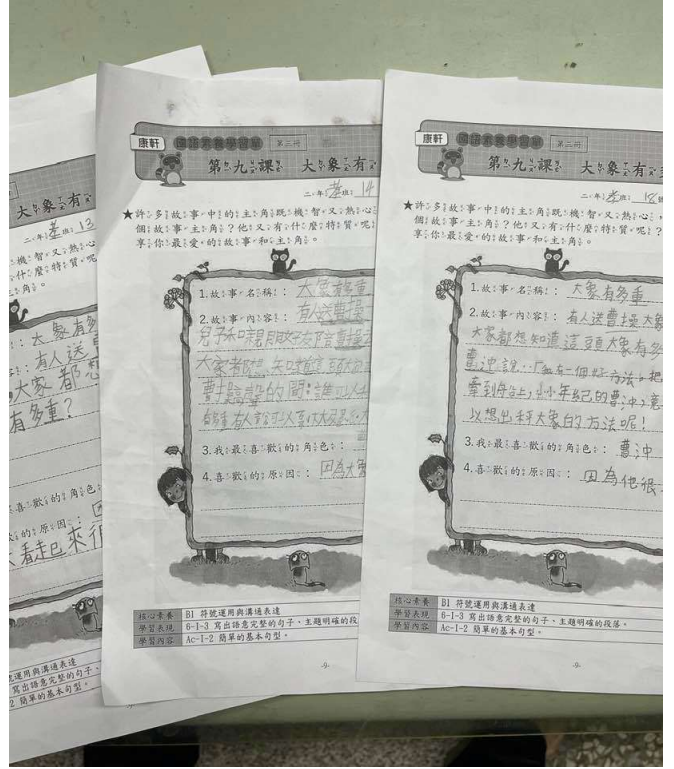 大象有
二年孝班13
機智又熱心
什麼特質呢
主角。
大象有多
有人送
大家都想
有多重?
喜歡的角色:
歡的原因:因
看起來很
號運用與溝通表達
寫出語意完整的句子、
2 簡單的基本句型。
康軒 國語素養學習單 第三冊
第九課 大象有
二年孝班14
★許多故事中的主角既機智又熱心
個故事主角?他又有什麼特質呢
享你最愛的故事和主角。
1.故事名稱:大象有多重
2.故事內容:有人送曹操
兒子和親朋好友陪曹操
大家都想知道這頭大
3.我最喜歡的角色:
4.喜歡的原因:因為大象
核心素養 B1 符號運用與溝通表達
學習表現 6-Ⅰ-3 寫出語意完整的句子、主題明確的段
學習內容 Ac-Ⅰ-2 簡單的基本句型。
-9-
康軒 國語素養學習單 第三冊
第九課 大象有多
二年孝班18號
★許多故事中的主角既機智又熱心,
個故事主角?他又有什麼特質呢?
享你最愛的故事和主角。
1.故事名稱:大象有多重
2.故事內容:有人送曹操大象
大家都想知道這頭大象有多
曹沖說:「我有一個好方法。把
牽到船上,小小年紀的曹沖,竟
以想出秤大象的方法呢!
3.我最喜歡的角色:曹沖
4.喜歡的原因:因為他很
核心素養 B1 符號運用與溝通表達
學習表現 6-Ⅰ-3 寫出語意完整的句子、主題明確的段落。
學習內容 Ac-Ⅰ-2 簡單的基本句型。
-9-